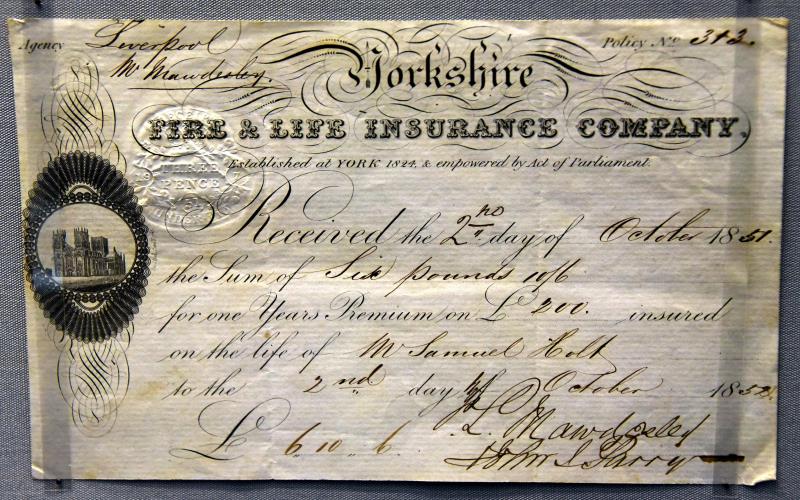 Agency Liverpool
Mr Mawdesley.
Policy No. 342.
Yorkshire
FIRE & LIFE INSURANCE COMPANY,
Established at YORK 1824, & empowered by Act of Parliament.
THREE
PENCE
Received the 2nd day of October 1851.
the Sum of Six pounds 10/6
for one Years Premium on £ 200. insured
on the life of Mr Samuel Holt
to the 2nd day of October 1852.
£ 6 " 10 " 6.
L. Mawdesley
John S Parry